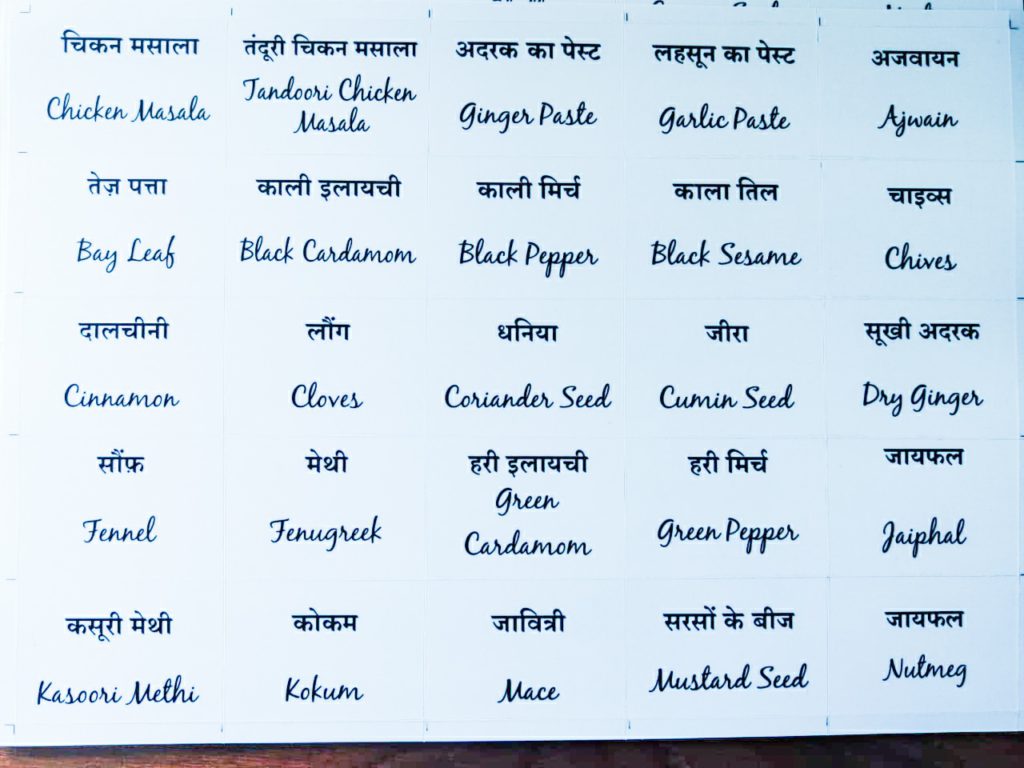 चिकन मसाला
Chicken Masala
तंदूरी चिकन मसाला
Tandoori Chicken
Masala
अदरक का पेस्ट
Ginger Paste
लहसून का पेस्ट
Garlic Paste
अजवायन
Ajwain
तेज़ पत्ता
Bay Leaf
काली इलायची
Black Cardamom
काली मिर्च
Black Pepper
काला तिल
Black Sesame
चाइव्स
Chives
दालचीनी
Cinnamon
लौंग
Cloves
धनिया
Coriander Seed
जीरा
Cumin Seed
सूखी अदरक
Dry Ginger
सौंफ़
Fennel
मेथी
Fenugreek
हरी इलायची
Green
Cardamom
हरी मिर्च
Green Pepper
जायफल
Jaiphal
कसूरी मेथी
Kasoori Methi
कोकम
Kokum
जावित्री
Mace
सरसों के बीज
Mustard Seed
जायफल
Nutmeg